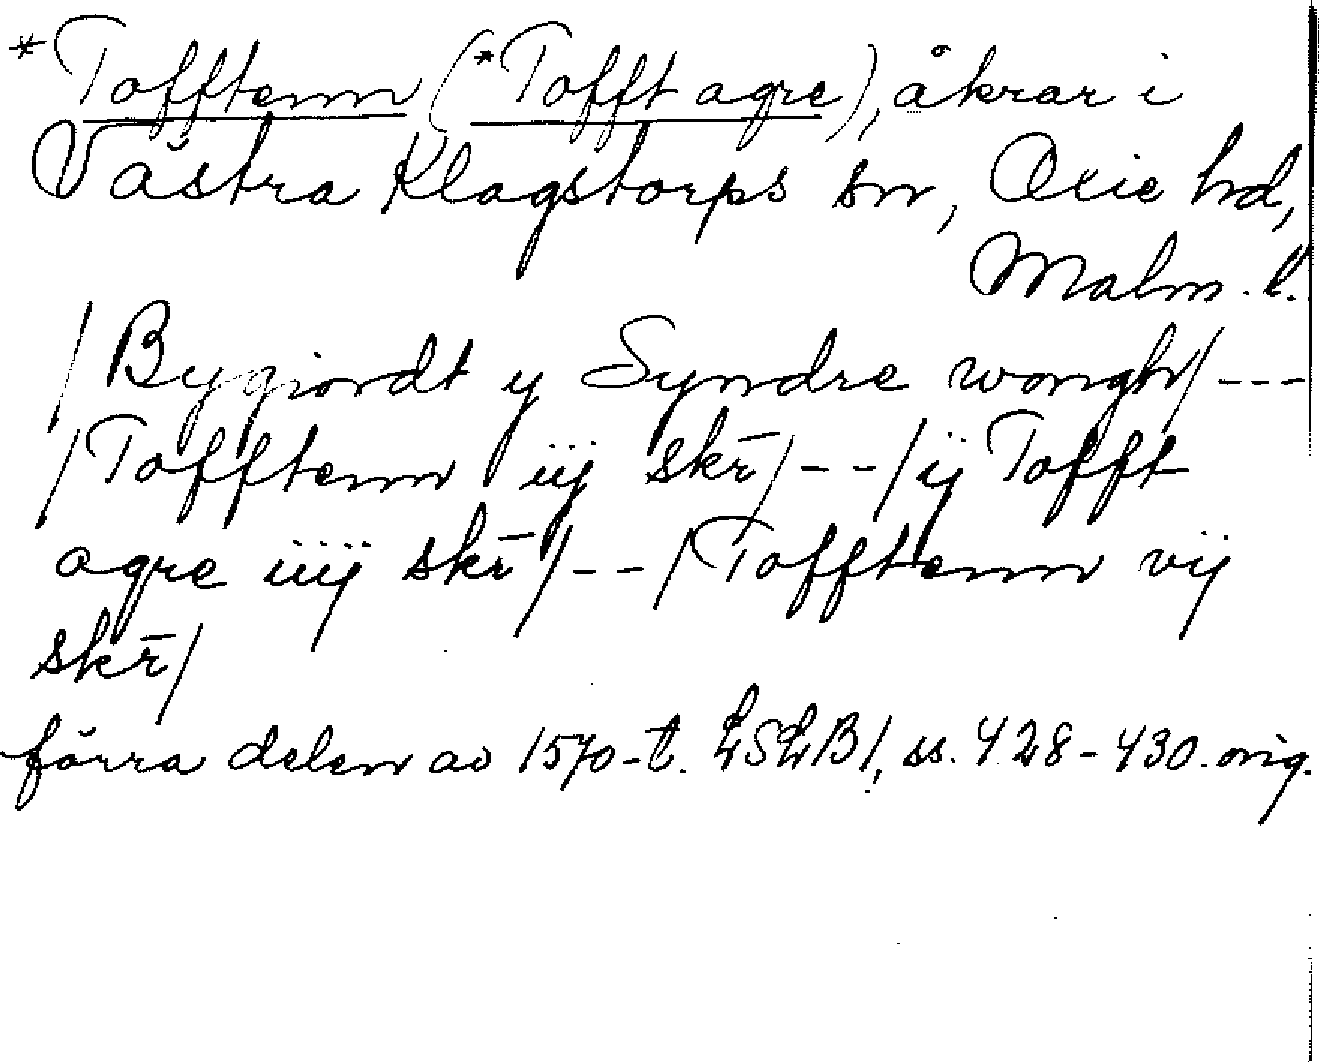 *Tofftenn (*Tofft agre), åkrar i
Västra Klagstorps sn, Oxie hd,
Malm. l.
/Bygiordt y Syndre wongh/ ---
/Tofftenn iij skr̄/ -- /ij Tofft
agre iiij skr̄/ -- /Tofftenn vij
skr̄/
förra delen av 1570-t. LSLB1, ss. 428-430. orig.